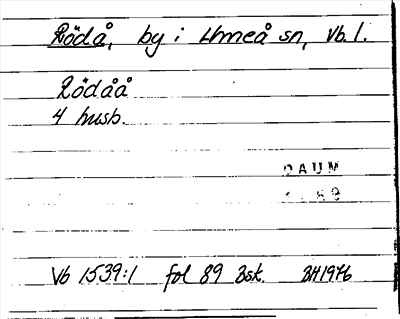 Rödå, by i Umeå sn, Vb. l.
Rödåå
4 husb.
DAUM
Vb 1539:1 fol 89 Bsk. BH1976